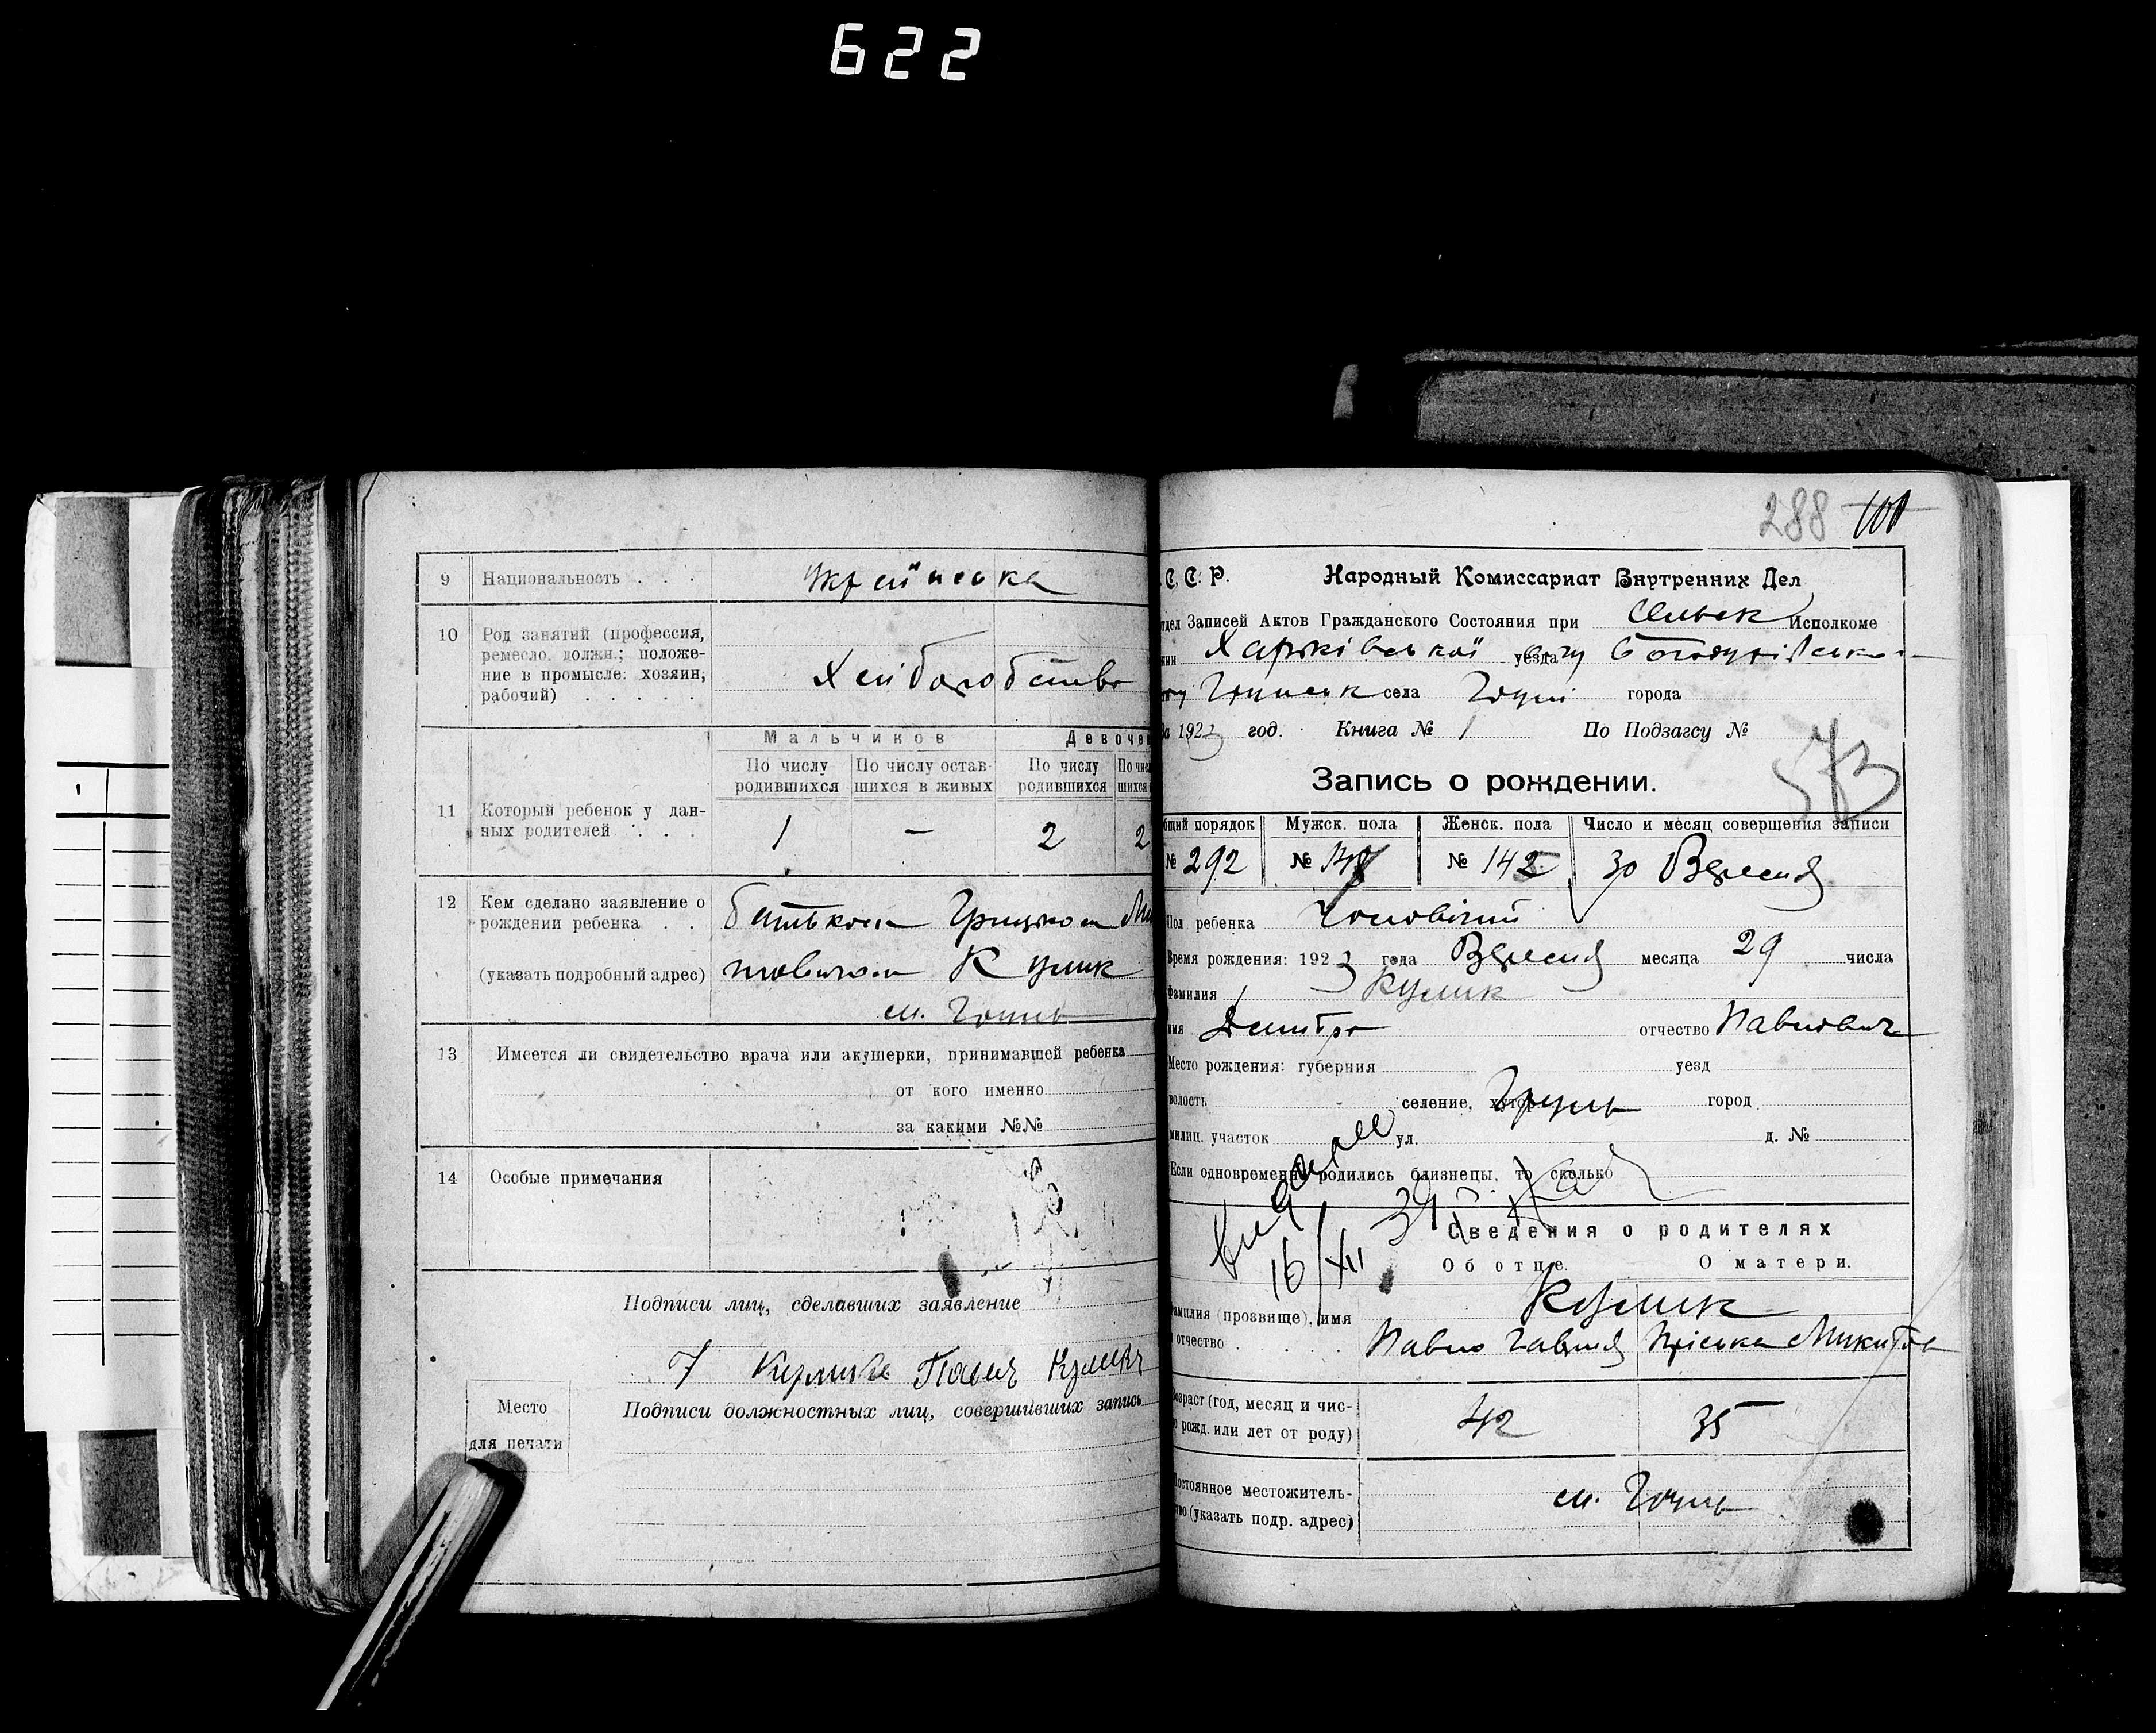 622
9 Национальность . . . Українська
10 Род занятий (профессия,
ремесло, должн.; положе-
ние в промысле: хозяин,
рабочий) . . . . .
Хліборобство
Мальчиков Девоче
По числу родившихся По числу остав-шихся в живых По числу родившихся
11 Который ребенок у дан-
ных родителей . . .
1 — 2 2
12 Кем сделано заявление о
рождении ребенка . .
(указать подробный адрес)
батьком Грицком
Кулик
13 Имеется ли свидетельство врача или акушерки, принимавшей ребенка
от кого именно
за какими №№
14 Особые примечания
Подписи лиц, сделавших заявление
Павел
Подписи должностных лиц, совершивших запись
Место
для печати
288
С. С. Р. Народный Комиссариат Внутренних Дел
Записей Актов Гражданского Состояния при Исполкоме
Харківської уезда
села города
1923 год. Книга № 1 По Подзагсу №
573
Запись о рождении.
порядок Мужск. пола Женск. пола Число и месяц совершения записи
№ 292 № № 142 30 Вересня
Пол ребенка Чоловічий
Время рождения: 1923 года Вересня месяца 29 числа
Фамилия Кулик
имя Дмитро отчество Павлович
Место рождения: губерния уезд
волость селение, хутор Грунь город
милиц. участок ул. д. №
Если одновременно родились близнецы, то сколько
16/XII
Сведения о родителях
Об отце. О матери.
Фамилия (прозвище), имя
отчество . . . .
Кулик
Павло Гаврил Пріська Микитов
Возраст (год, месяц и чис-
рожд. или лет от роду)
42 35
Постоянное местожитель-
ство (указать подр. адрес)